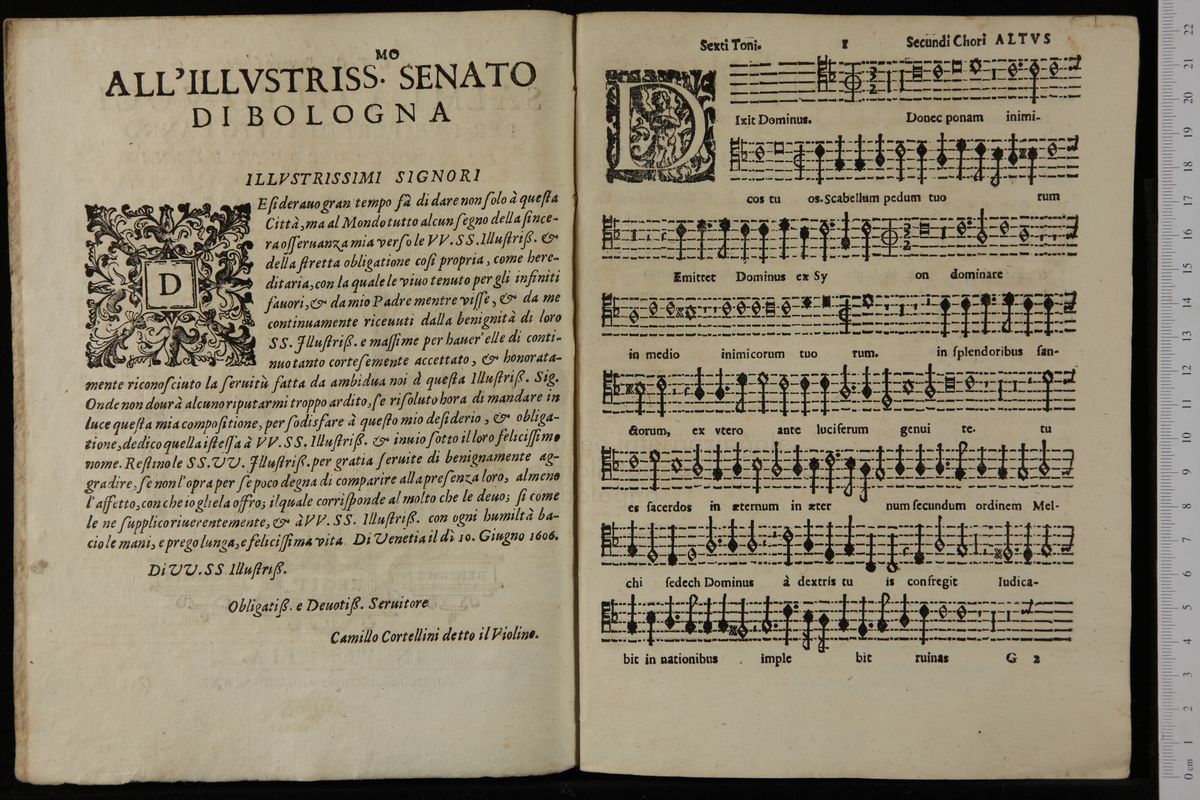 ALL'ILLVSTRISS.MO SENATO
DI BOLOGNA
ILLVSTRISSIMI SIGNORI
DEsiderauo gran tempo fà di dare non solo à questa
Città, ma al Mondo tutto alcun segno della since-
ra osseruanza mia verso le VV. SS. Illustriß. &
della stretta obligatione così propria, come here-
ditaria, con la quale le viuo tenuto per gli infiniti
fauori, & da mio Padre mentre visse, & da me
continuamente riceuuti dalla benignità di loro
SS. Illustriß. e massime per hauer'elle di conti-
nuo tanto cortesemente accettato, & honorata-
mente riconosciuto la seruitù fatta da ambidua noi à questa Illustriß. Sig.
Onde non dourà alcuno riputarmi troppo ardito, se risoluto hora di mandare in
luce questa mia compositione, per sodisfare à questo mio desiderio, & obliga-
tione, dedico quella istessa à VV. SS. Illustriß. & inuio sotto il loro felicissimo
nome. Restino le SS. VV. Illustriß. per gratia seruite di benignamente ag-
gradire, se non l'opra per se poco degna di comparire alla presenza loro, almeno
l'affetto, con che io gliela offro; il quale corrisponde al molto che le deuo; si come
le ne supplico riuerentemente, & à VV. SS. Illustriß. con ogni humiltà ba-
cio le mani, e prego lunga, e felicissima vita. Di Venetia il dì 10. Giugno 1606.
Di VV. SS Illustriß.
Obligatiß. e Deuotiß. Seruitore
Camillo Cortellini detto il Violino.
Sexti Toni. 1 Secundi Chori ALTVS
DIxit Dominus. Donec ponam inimi-
cos tu os. Scabellum pedum tuo rum
Emittet Dominus ex Sy on dominare
in medio inimicorum tuo rum. in splendoribus san-
ctorum, ex vtero ante luciferum genui te. tu
es sacerdos in æternum in æter num secundum ordinem Mel-
chi sedech Dominus à dextris tu is confregit Iudica-
bit in nationibus imple bit ruinas G 2
22
21
20
19
18
17
16
15
14
13
12
11
10
9
8
7
6
5
4
3
2
1
0 cm